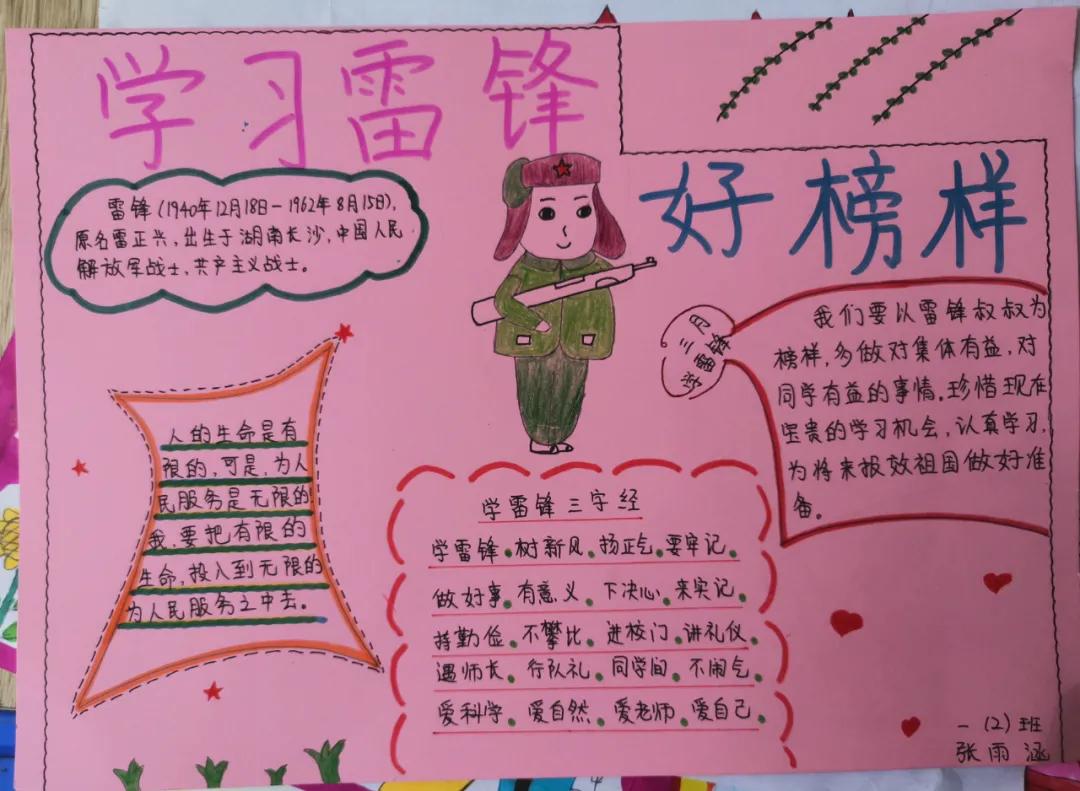 学习雷锋
好榜样
雷锋(1940年12月18日-1962年8月15日),
原名雷正兴,出生于湖南长沙,中国人民
解放军战士、共产主义战士。
三月
学雷锋
我们要以雷锋叔叔为
榜样,多做对集体有益,对
同学有益的事情。珍惜现在
宝贵的学习机会,认真学习,
为将来报效祖国做好准
备。
人的生命是有
限的,可是,为人
民服务是无限的
我,要把有限的
生命,投入到无限的
为人民服务之中去。
学雷锋三字经
学雷锋。树新风。扬正气。要牢记。
做好事。有意义。下决心。来实记。
持勤俭。不攀比。进校门。讲礼仪。
遇师长。行队礼。同学间。不闹气。
爱科学。爱自然。爱老师。爱自己。
一(2)班
张雨涵